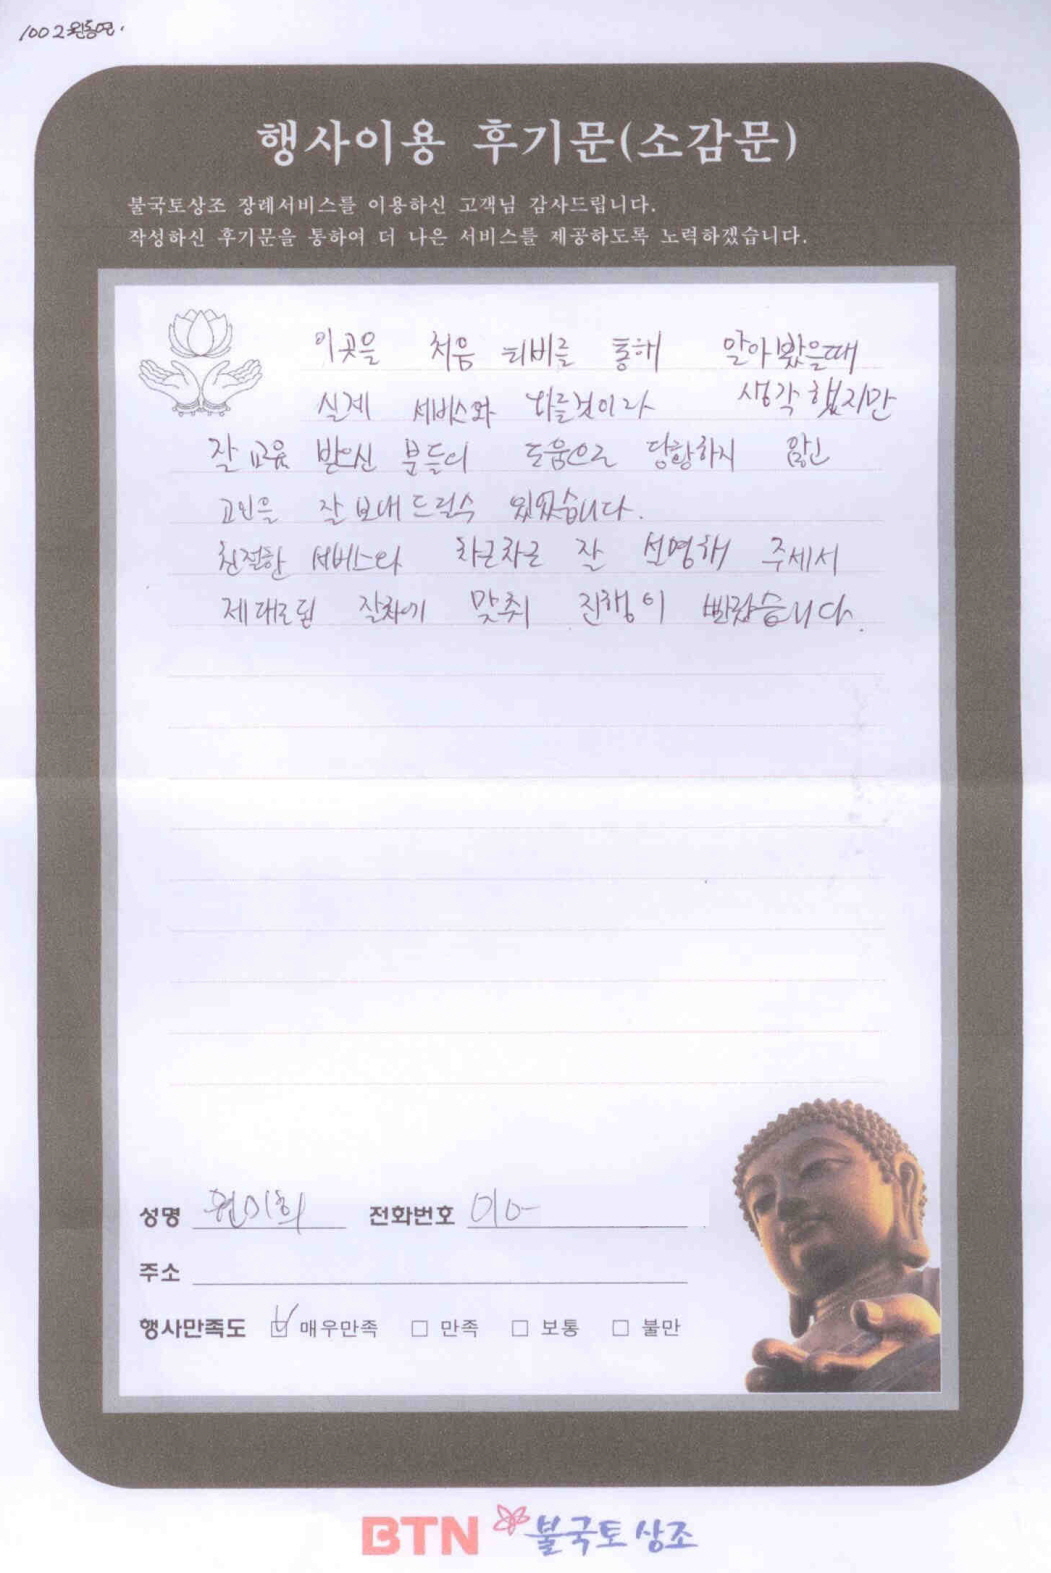 1002 원동연.
행사이용 후기문(소감문)
불국토상조 장례서비스를 이용하신 고객님 감사드립니다.
작성하신 후기문을 통하여 더 나은 서비스를 제공하도록 노력하겠습니다.
이곳을 처음 티비를 통해 알아봤을때
실제 서비스와 다를것이라 생각했지만
잘 교육 받으신 분들의 도움으로 당황하지 않고
고인을 잘 보내 드릴수 있었습니다.
친절한 서비스와 차근차근 잘 설명해 주셔서
제대로된 절차에 맞춰 진행이 빨랐습니다.
성명 전화번호 010-
주소
행사만족도 ☑ 매우만족 □ 만족 □ 보통 □ 불만
BTN 불국토상조